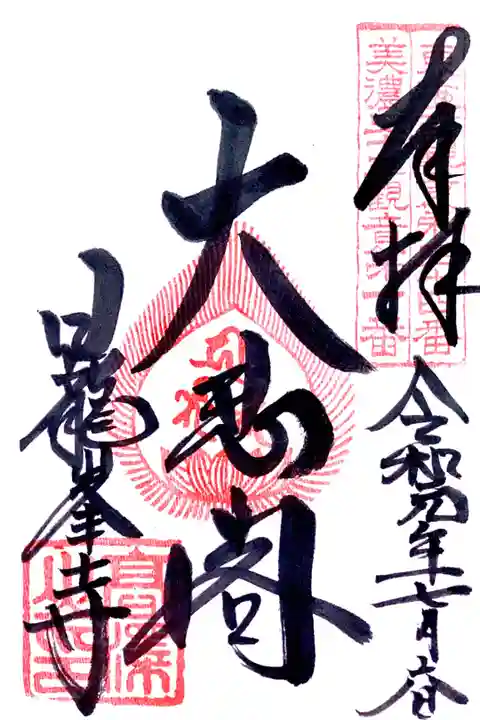 奉拝
美濃三十三観音第一番
令和元年七月六日
大悲閣
日龍峯寺